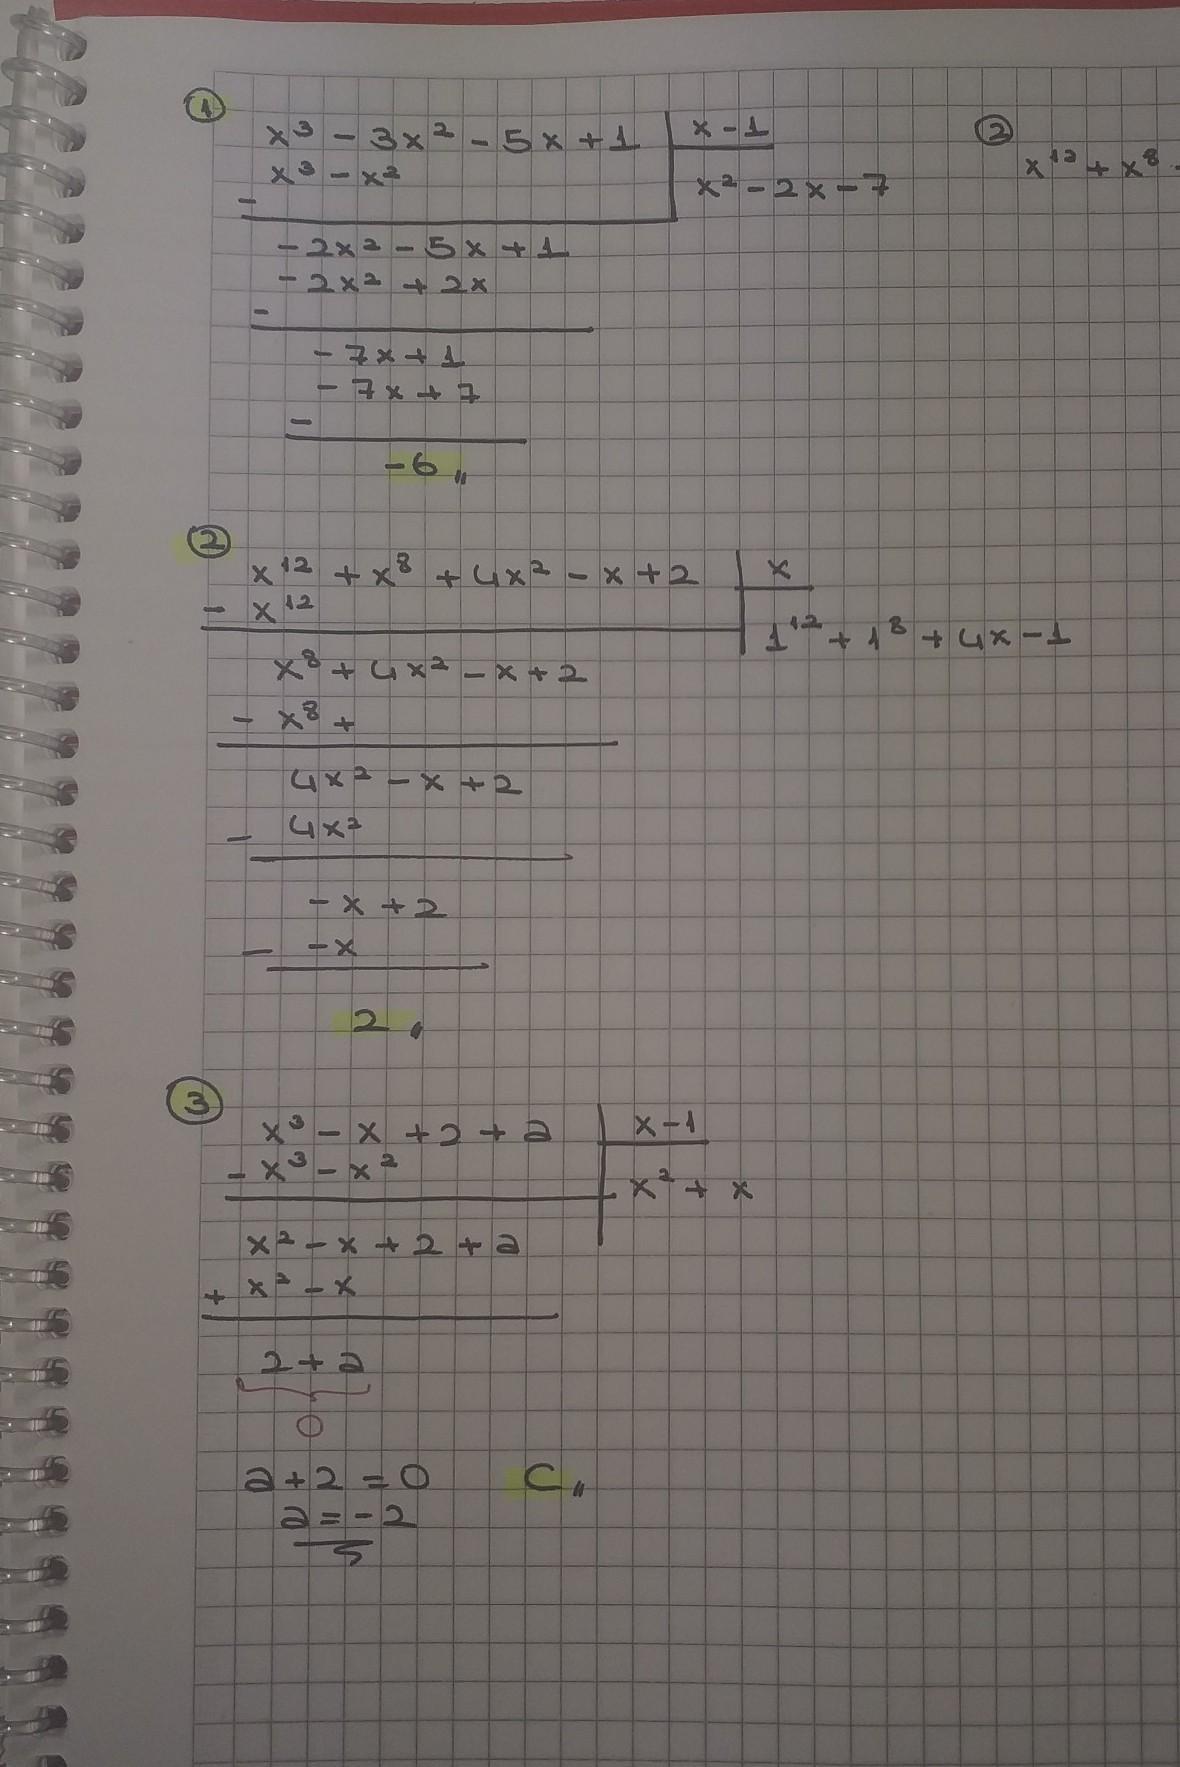 ①
x³ - 3x² - 5x + 1 | x - 1
x³ - x² | x² - 2x - 7
-
-2x² - 5x + 1
-2x² + 2x
-
-7x + 1
-7x + 7
-
-6 〃
②
x¹² + x⁸ -
②
x¹² + x⁸ + 4x² - x + 2 | x
- x¹² | 1¹² + 1⁸ + 4x - 1
x⁸ + 4x² - x + 2
- x⁸ +
4x² - x + 2
- 4x²
-x + 2
- -x
2 〃
③
x³ - x + 2 + a | x - 1
- x³ - x² | x² + x
x² - x + 2 + a
+ x² - x
2 + a
0
a + 2 = 0 C 〃
a = -2